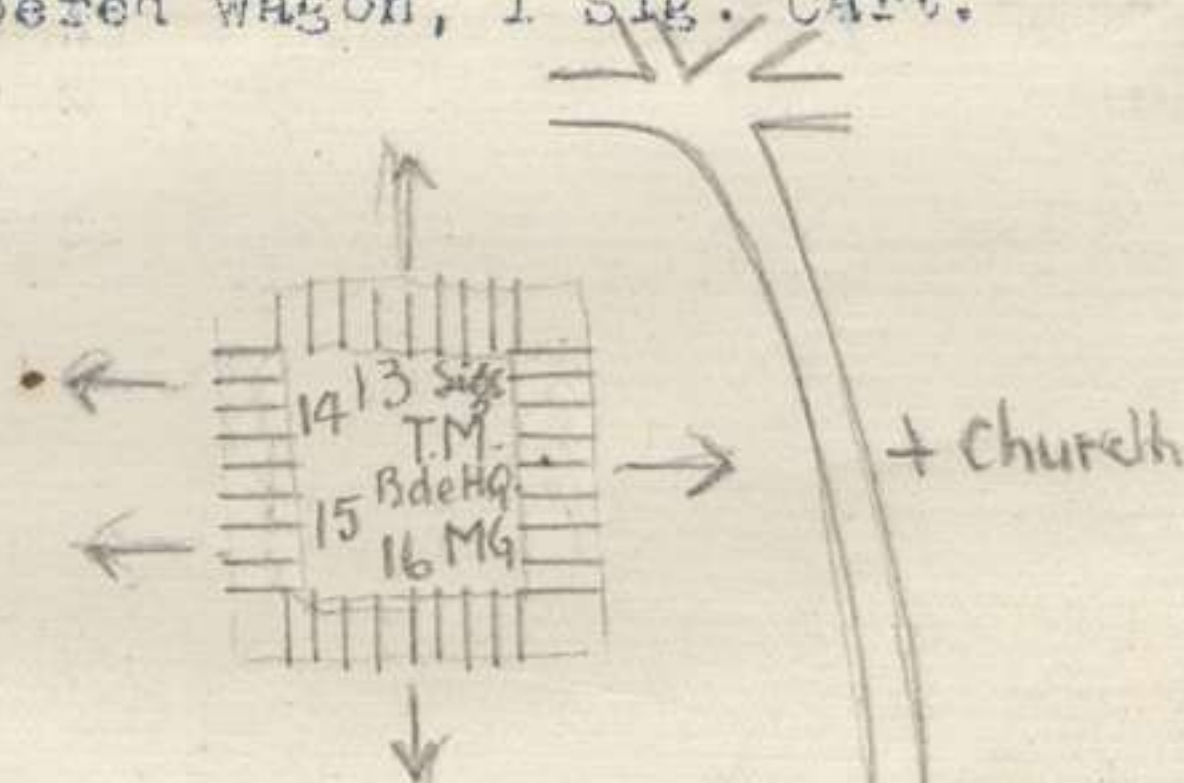 wagon, 1 Sig. Cart.
13 Sigs
14
T.M.
Bde HQ.
15
16 MG
+ Church